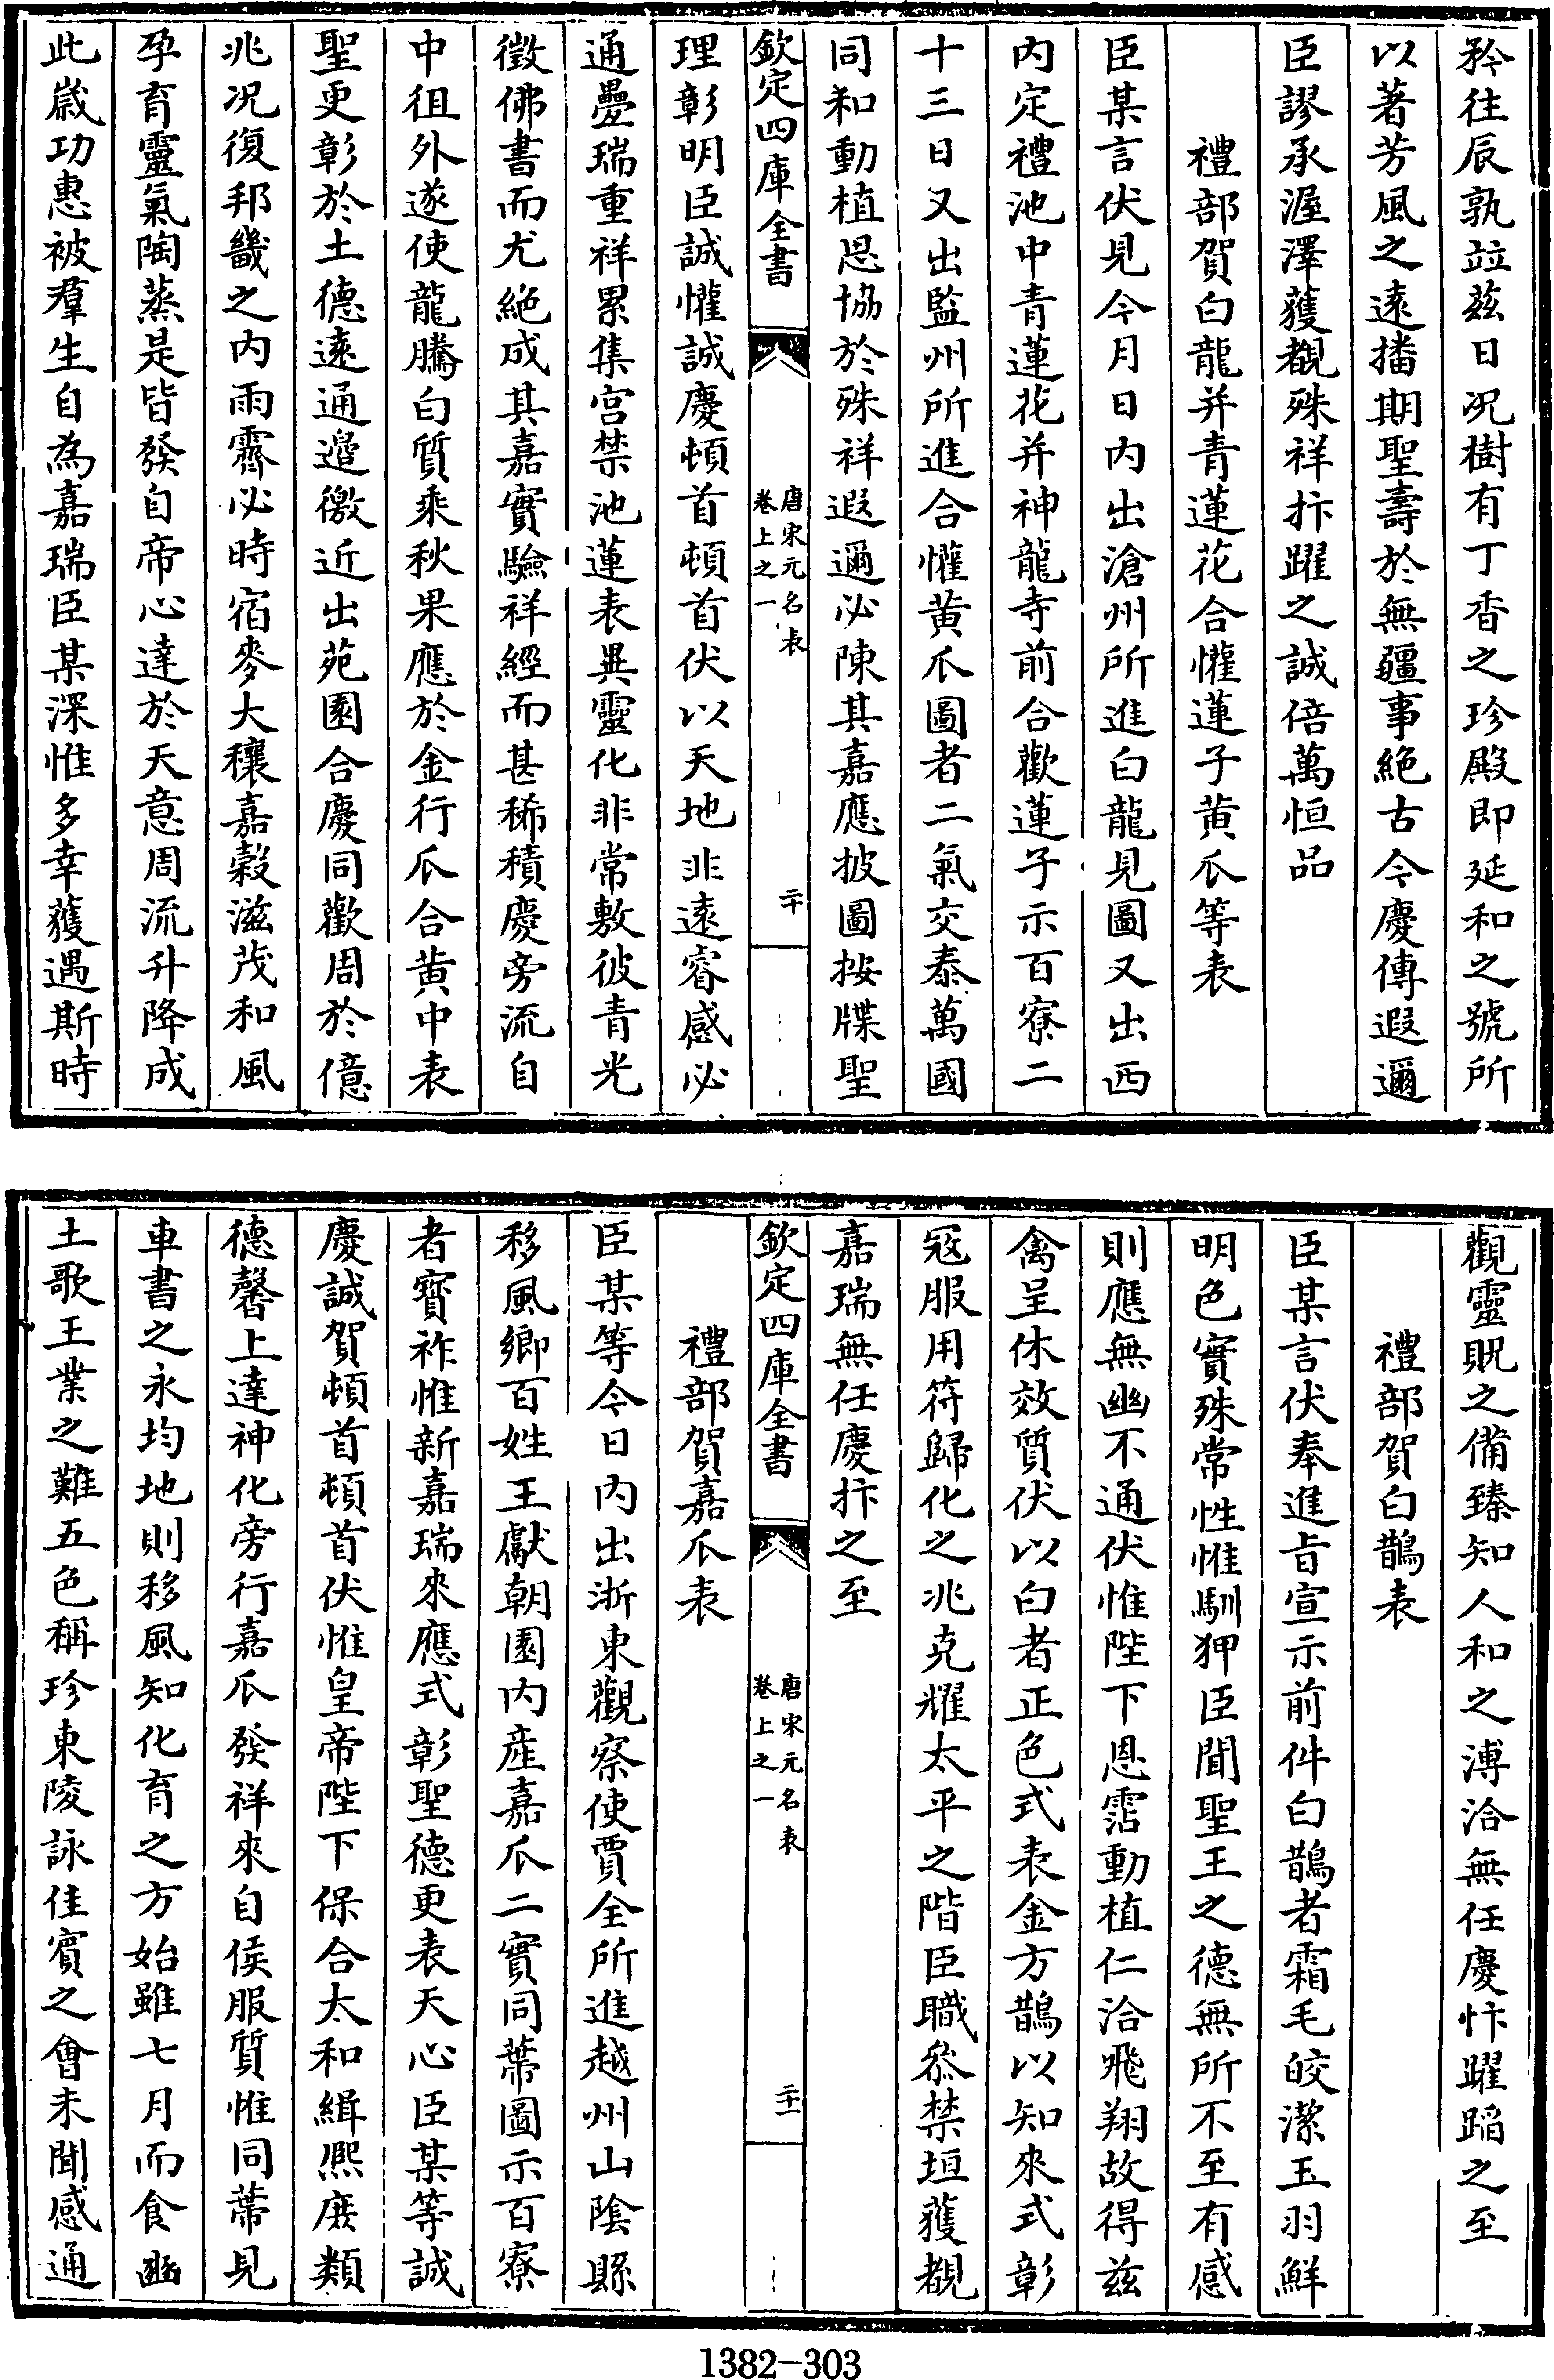 矜往辰孰竝茲日况樹有丁香之珍殿即延和之號所
以著芳風之遠播期聖壽於無疆事絶古今慶傳遐邇
臣謬承渥澤獲覩殊祥抃躍之誠倍萬恒品
禮部賀白龍并青蓮花合懽蓮子黄瓜等表
臣某言伏見今月日内出滄州所進白龍見圖又出西
内定禮池中青蓮花并神龍寺前合歡蓮子示百寮二
十三日又出監州所進合懽黄瓜圖者二氣交泰萬國
同和動植恩協於殊祥遐邇必陳其嘉應披圖按牒聖
欽定四庫全書
唐宋元名表
卷上之一
二十
理彰明臣誠懽誠慶頓首頓首伏以天地非遠睿感必
通疊瑞重祥累集宫禁池蓮表異靈化非常敷彼青光
徵佛書而尤絶成其嘉實驗祥經而甚稀積慶旁流自
中徂外遂使龍騰白質乘秋果應於金行瓜合黄中表
聖更彰於土德遠通邉徼近出苑園合慶同歡周於億
兆况復邦畿之内雨霽必時宿麥大穰嘉穀滋茂和風
孕育靈氣陶蒸是皆發自帝心達於天意周流升降成
此嵗功惠被羣生自為嘉瑞臣某深惟多幸獲遇斯時
觀靈貺之備臻知人和之溥洽無任慶忭躍蹈之至
禮部賀白鵲表
臣某言伏奉進㫖宣示前件白鵲者霜毛皎潔玉羽鮮
明色實殊常性惟馴狎臣聞聖王之德無所不至有感
則應無幽不通伏惟陛下恩霑動植仁洽飛翔故得兹
禽呈休效質伏以白者正色式表金方鵲以知來式彰
冦服用符歸化之兆克耀太平之階臣職叅禁垣獲覩
嘉瑞無任慶抃之至
欽定四庫全書
唐宋元名表
卷上之一
二十一
禮部賀嘉瓜表
臣某等今日内出浙東觀察使賈全所進越州山隂縣
移風鄉百姓王獻朝園内産嘉瓜二實同蔕圖示百寮
者寳祚惟新嘉瑞來應式彰聖德更表天心臣某等誠
慶誠賀頓首頓首伏惟皇帝陛下保合太和緝熈庶類
德馨上達神化旁行嘉瓜發祥來自侯服質惟同蔕見
車書之永均地則移風知化育之方始雖七月而食豳
土歌王業之難五色稱珍東陵詠佳賓之會未聞感通
1382-303